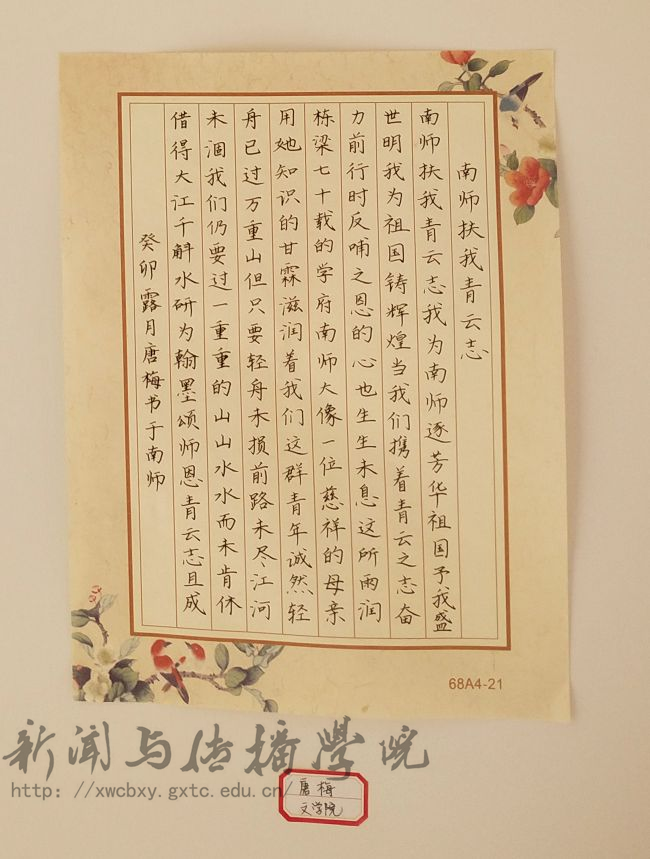 南师扶我青云志
南师扶我青云志我为南师逐芳华祖国予我盛
世明我为祖国铸辉煌当我们携着青云之志奋
力前行时反哺之恩的心也生生未息这所雨润
栋梁七十载的学府南师大像一位慈祥的母亲
用她知识的甘霖滋润着我们这群青年诚然轻
舟已过万重山但只要轻舟未损前路未尽江河
未涸我们仍要过一重重的山山水水而未肯休
借得大江千斛水研为翰墨颂师恩青云志且成
癸卯露月唐梅书于南师
68A4-21
新闻与传播学院
http: //xwcbxy.gxtc.edu.cn/
唐梅
文学院